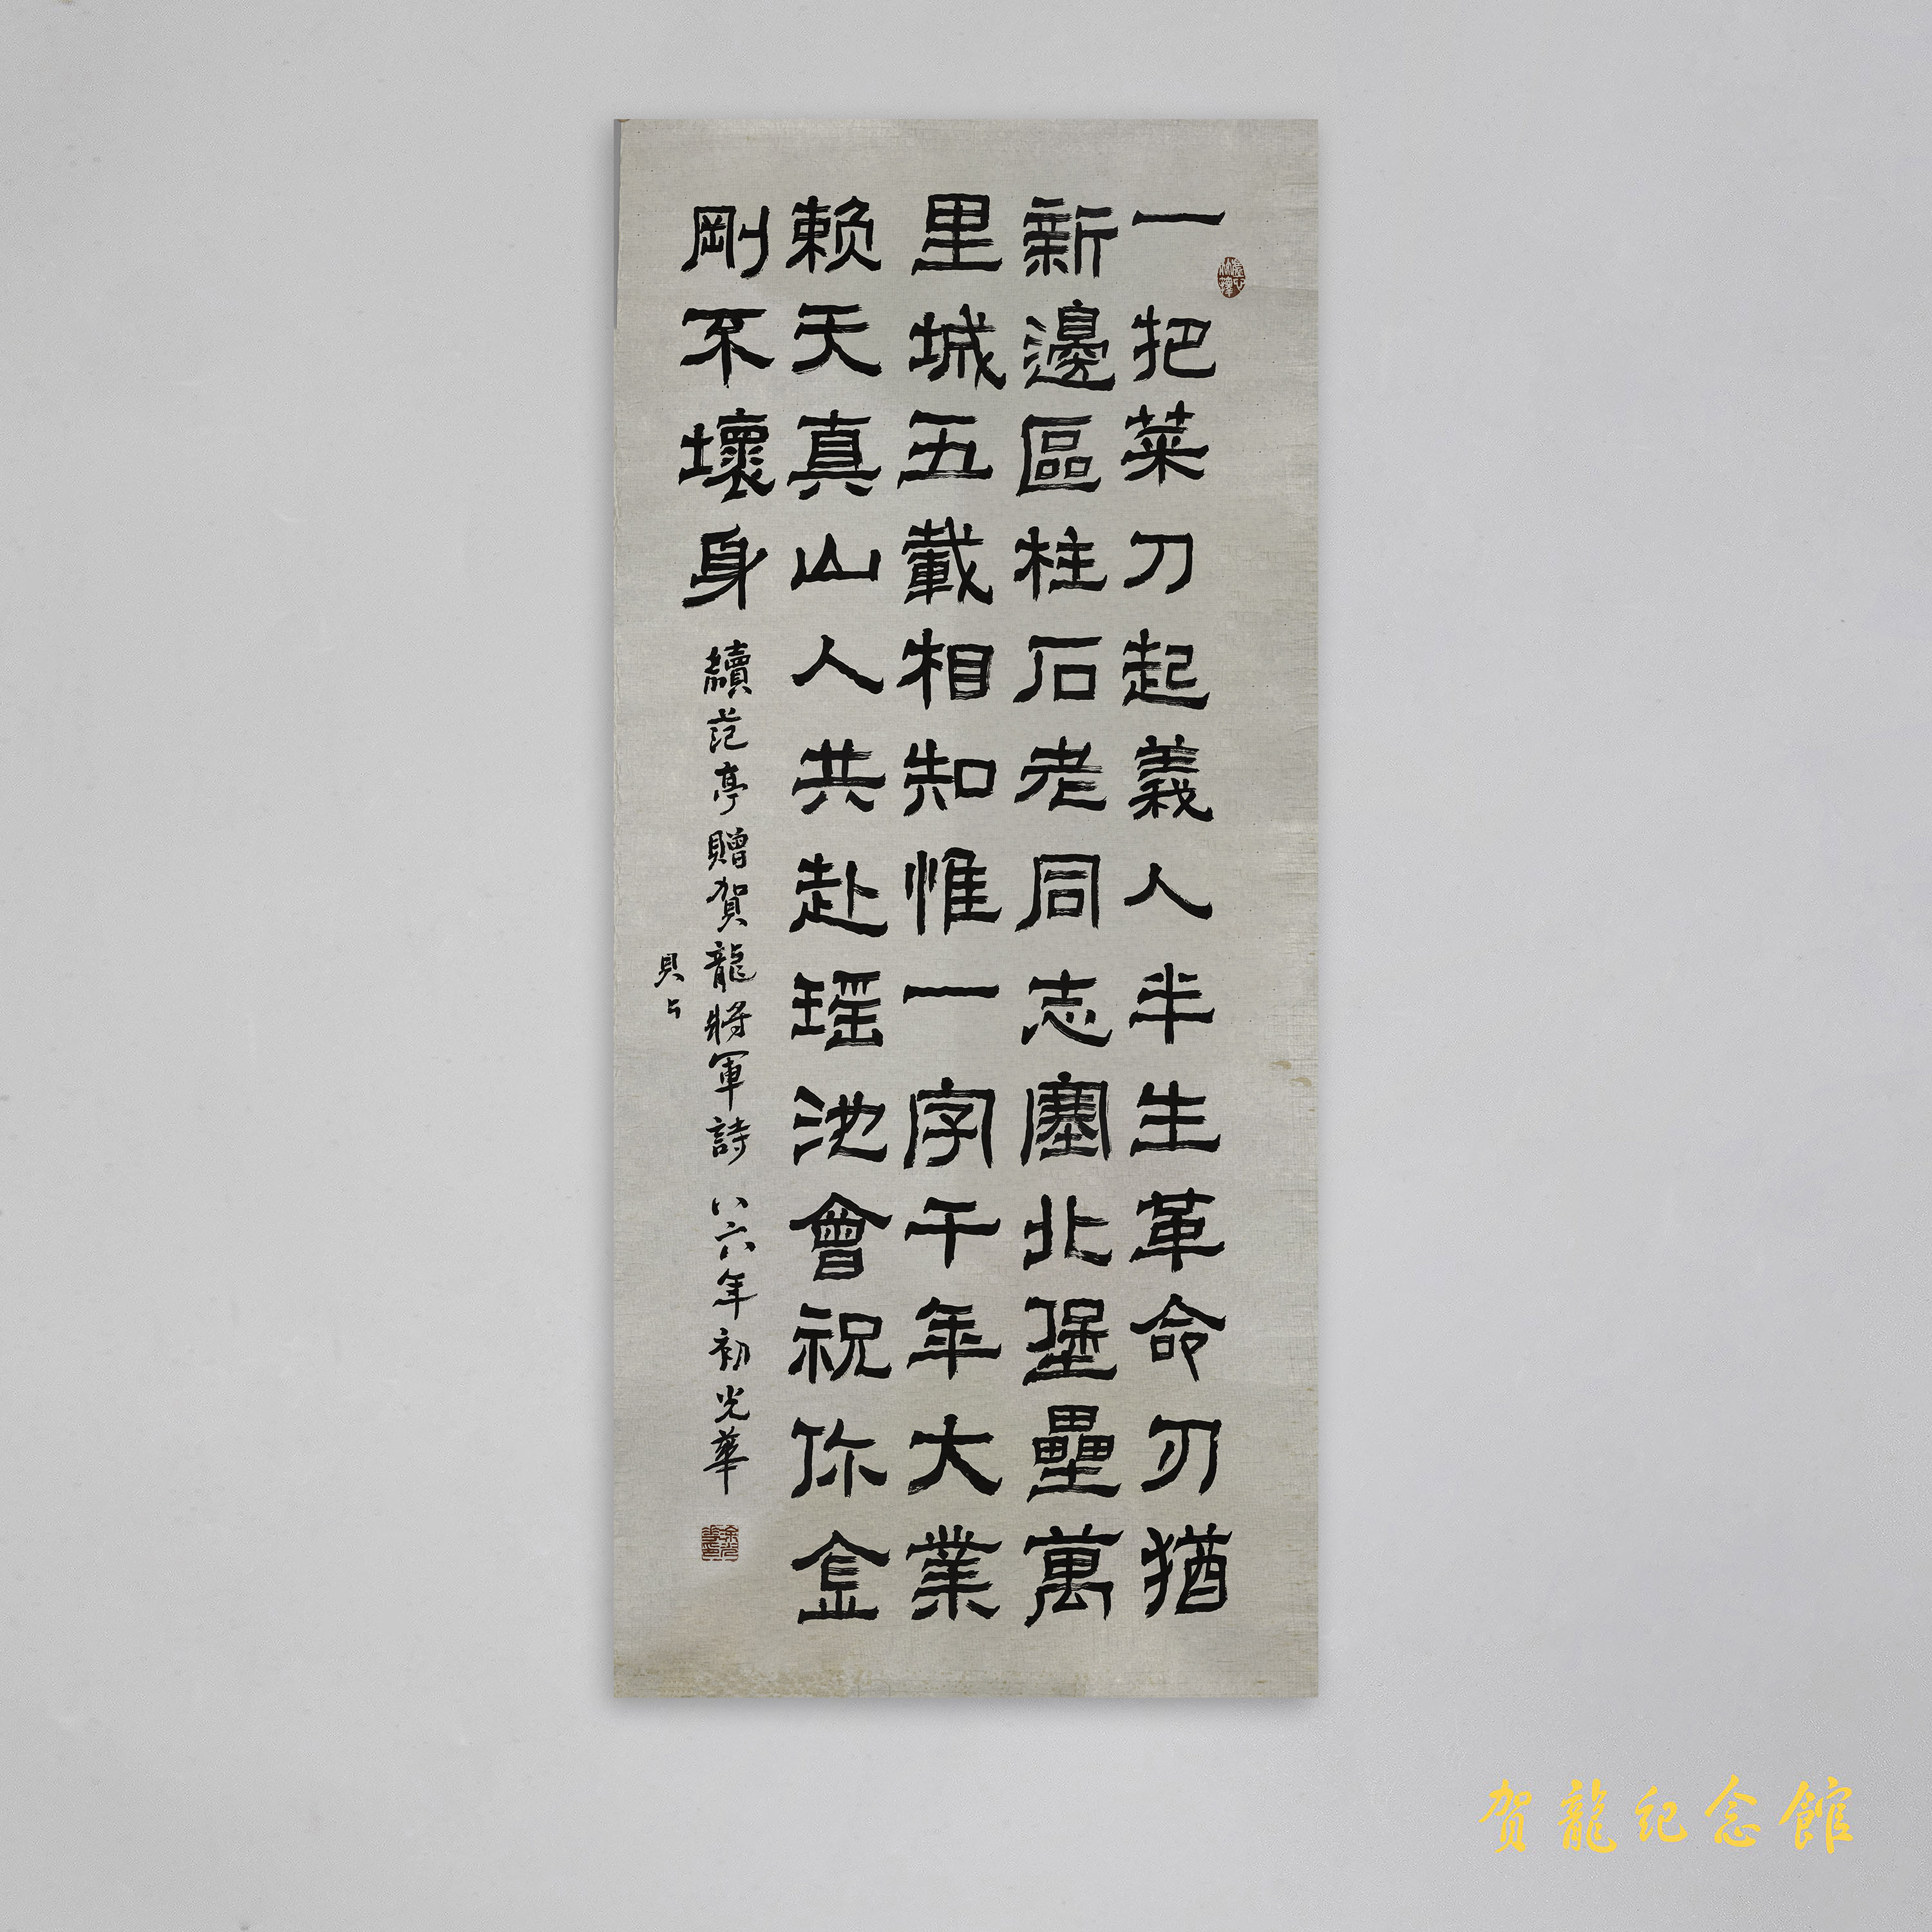 一把菜刀起義人半生革命刃猶
新邊區柱石老同志塞北堡壘萬
里城五載相知惟一字千年大業
赖天真山人共赴瑶池會祝你金
剛不壞身
續范亭贈賀龍將軍詩 八六年初光華
賀龍纪念館